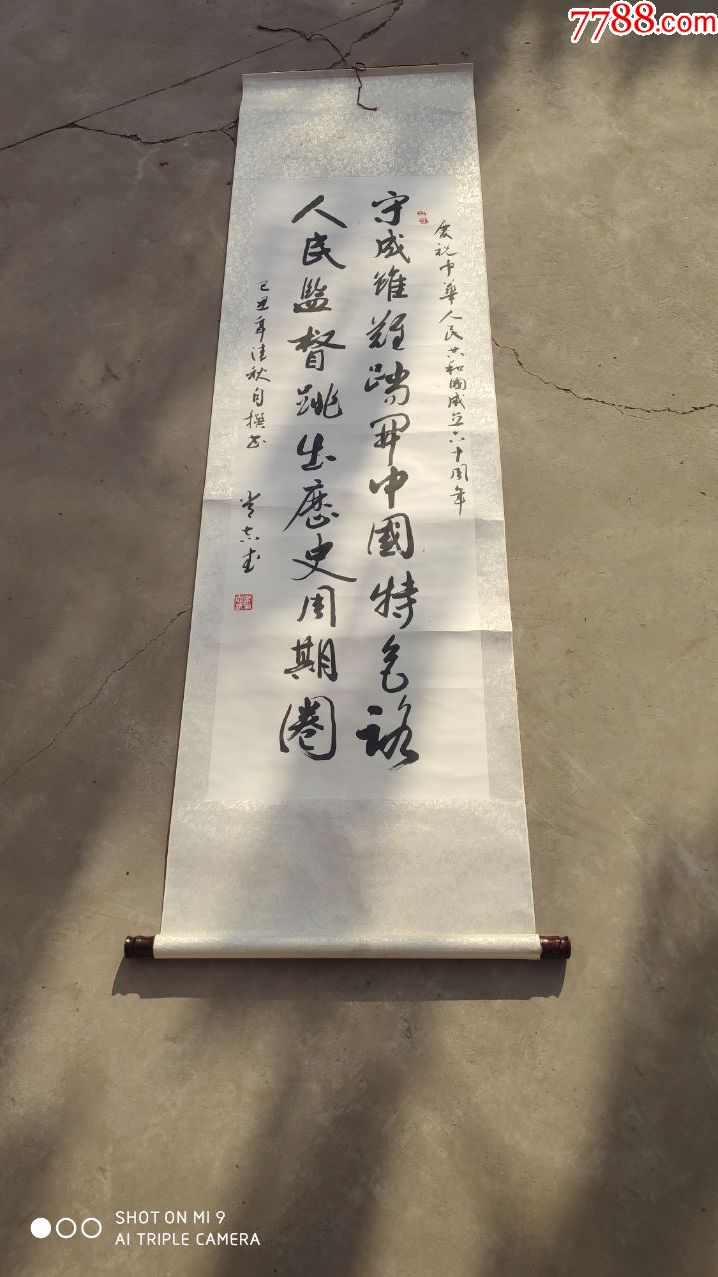 7788.com
庆祝中华人民共和國成立六十周年
守成雖難踏開中國特色路
人民監督跳出歷史周期圈
己丑年清秋自撰書
SHOT ON MI 9
AI TRIPLE CAMERA